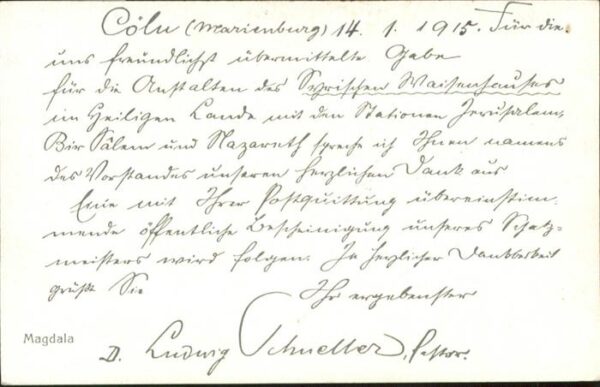 Cöln (Marienburg) 14. 1. 1915. Für die
uns freundlichst übermittelte Gabe
für die Anstalten des Syrischen Waisenhauses
im Heiligen Lande mit den Stationen Jerusalem,
Bir Sâlem und Nazareth spreche ich Ihnen namens
des Vorstandes unseren herzlichen Dank aus
Eine mit Ihrer Postquittung übereinstim-
mende öffentliche Bescheinigung unseres Schatz-
meisters wird folgen. In herzlicher Dankbarkeit
grüßt Sie Ihr ergebenster
Magdala
D. Ludwig Schneller, Pastor.